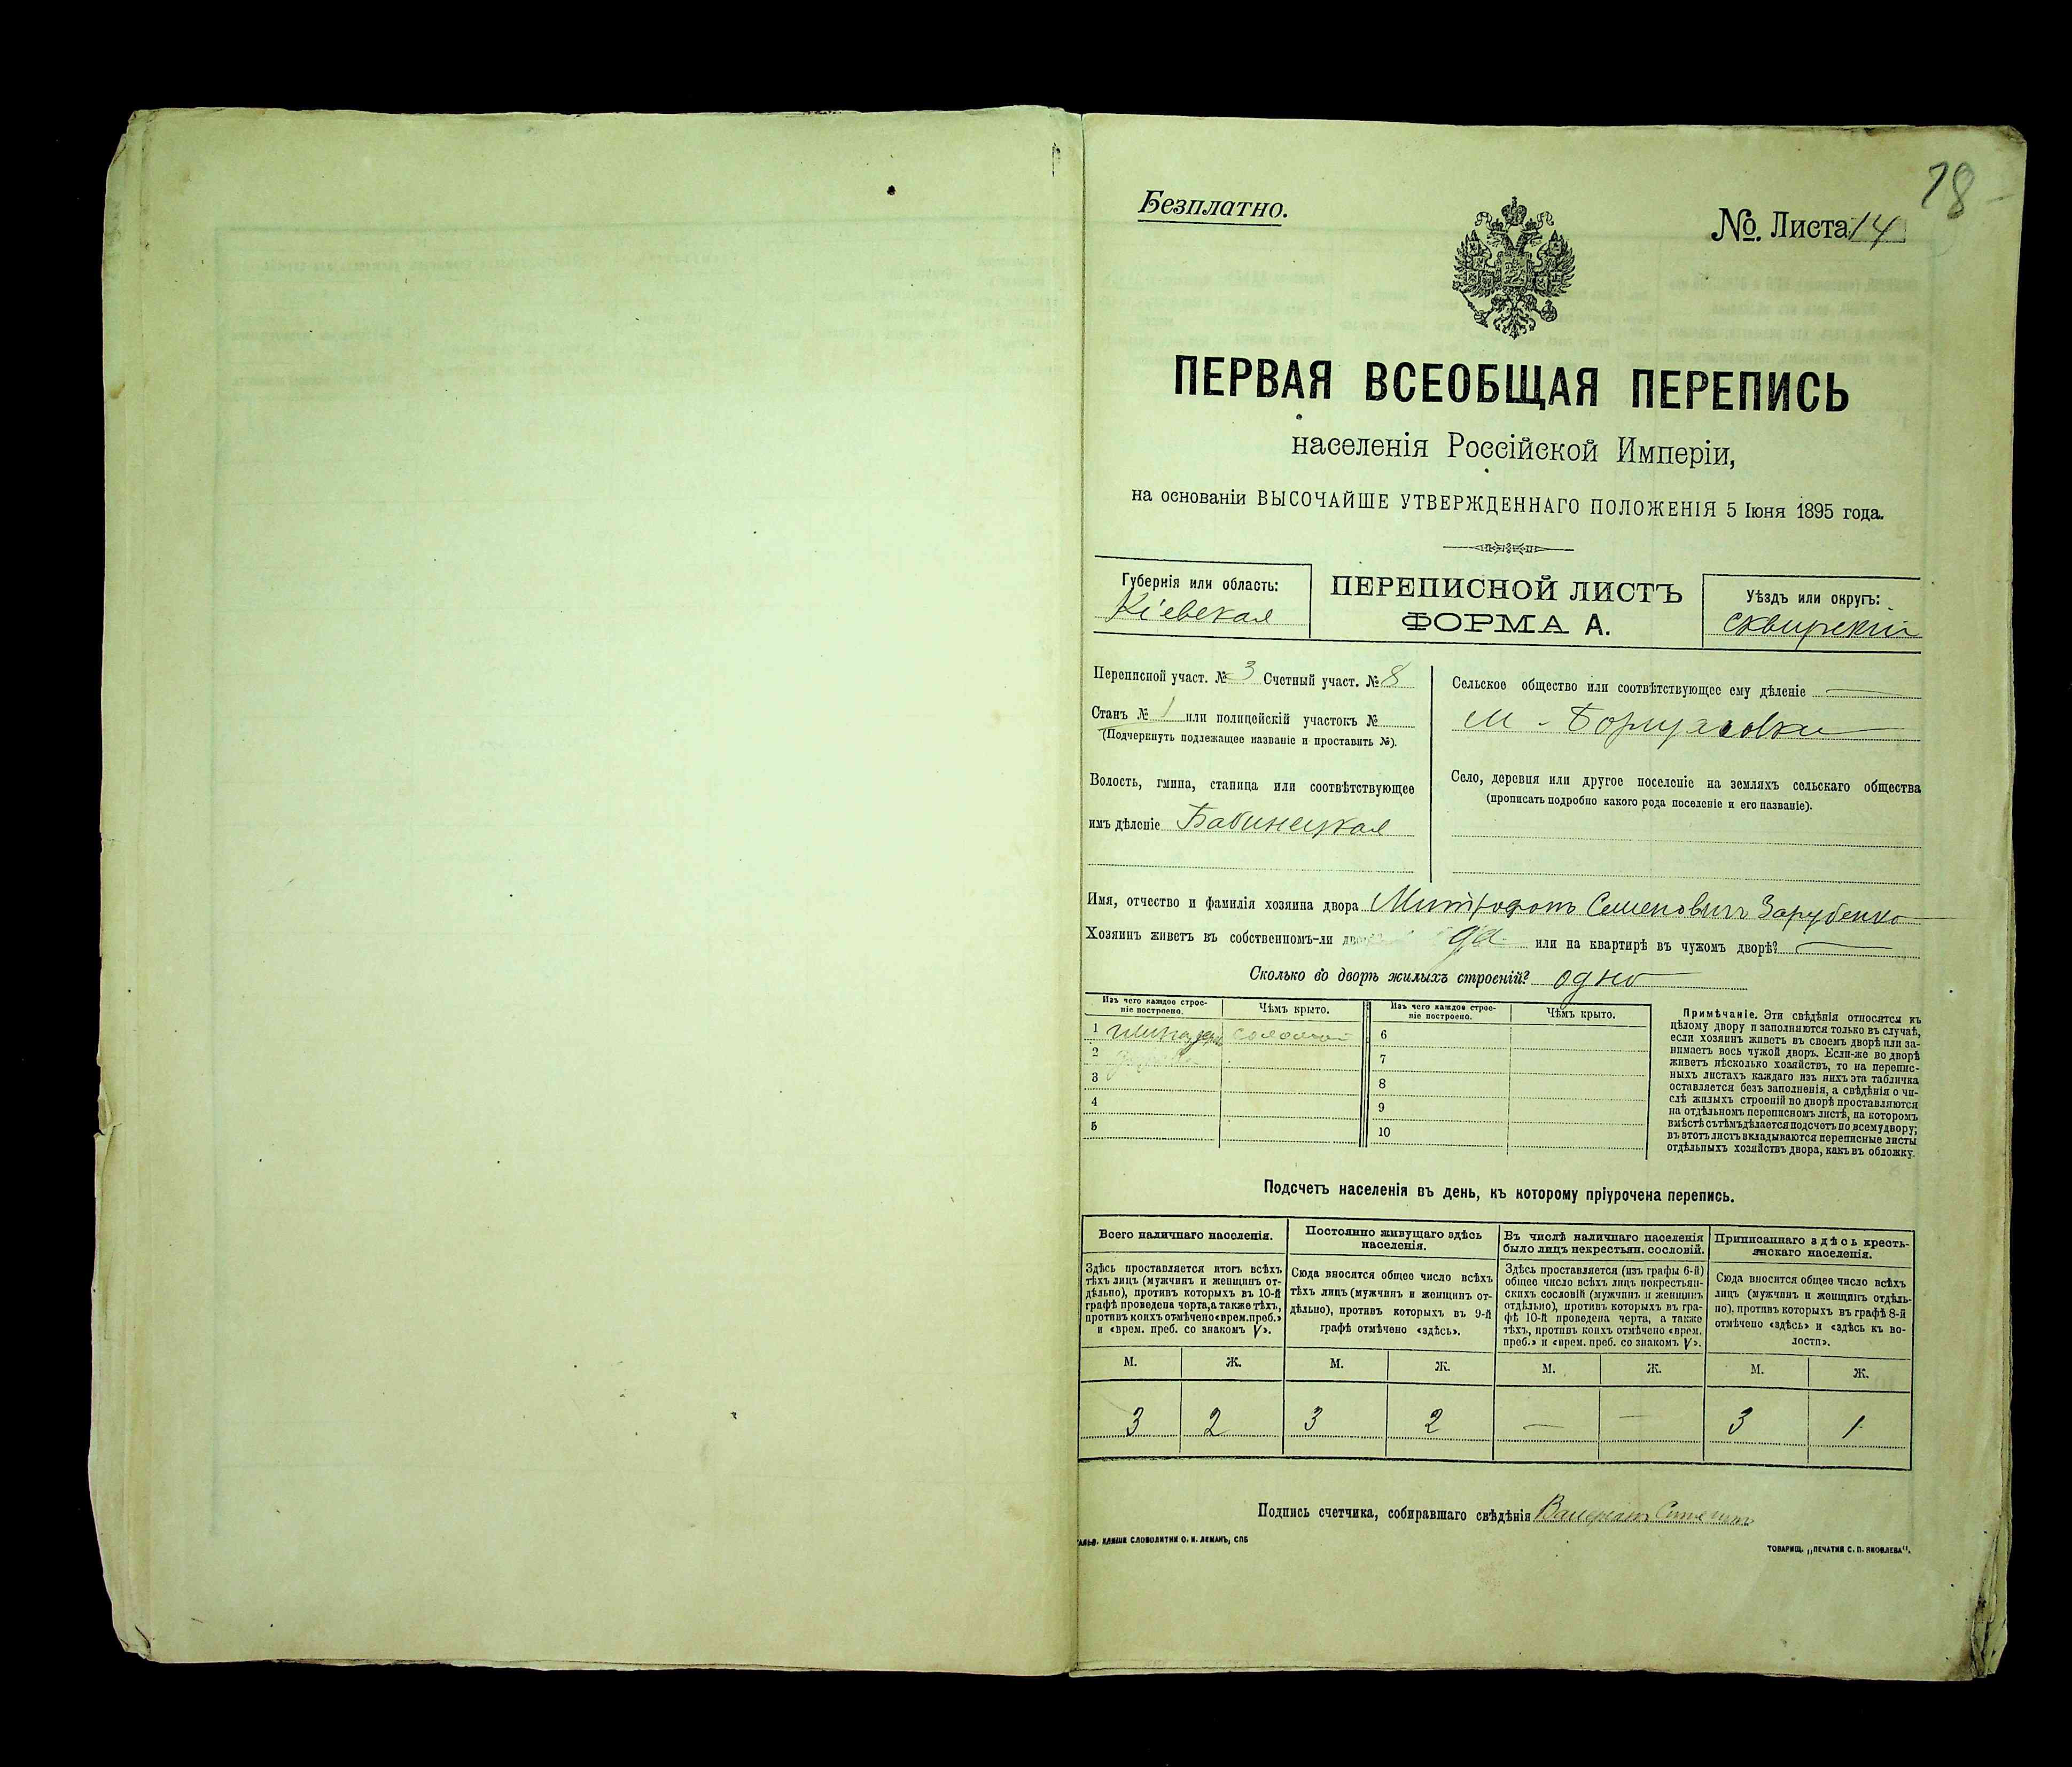 78
Безплатно.
№. Листа 14
ПЕРВАЯ ВСЕОБЩАЯ ПЕРЕПИСЬ
населенія Россійской Имперіи,
на основаніи ВЫСОЧАЙШЕ УТВЕРЖДЕННАГО ПОЛОЖЕНІЯ 5 Іюня 1895 года.
Губернія или область:
Кіевская
ПЕРЕПИСНОЙ ЛИСТЪ
ФОРМА А.
Уѣздъ или округъ:
Сквирскій
Переписной участ. № 3 Счетный участ. № 8
Станъ № 1 или полицейскій участокъ №
(Подчеркнуть подлежащее названіе и проставить №).
Волость, гмина, станица или соотвѣтствующее
имъ дѣленіе Бабинецкая
Сельское общество или соотвѣтствующее ему дѣленіе —
м -
Село, деревня или другое поселеніе на земляхъ сельскаго общества
(прописать подробно какого рода поселеніе и его названіе).
Имя, отчество и фамилія хозяина двора Митрофанъ Семеновичъ Зарубенко
Хозяинъ живетъ въ собственномъ-ли да или на квартирѣ въ чужомъ дворѣ? —
Сколько во дворѣ жилыхъ строеній? одно
Изъ чего каждое строе-
ніе построено.
Чѣмъ крыто.
Изъ чего каждое строе-
ніе построено.
Чѣмъ крыто.
1 соломой 6
2 7
3 8
4 9
5 10
Примѣчаніе. Эти свѣдѣнія относятся къ
цѣлому двору и заполняются только въ случаѣ,
если хозяинъ живетъ въ своемъ дворѣ или за-
нимаетъ весь чужой дворъ. Если-же во дворѣ
живетъ нѣсколько хозяйствъ, то на перепис-
ныхъ листахъ каждаго изъ нихъ эта табличка
оставляется безъ заполненія, а свѣдѣнія о чи-
слѣ жилыхъ строеній во дворѣ проставляются
на отдѣльномъ переписномъ листѣ, на которомъ
вмѣстѣ съ тѣмъ дѣлается подсчетъ по всему двору;
въ этотъ листъ вкладываются переписные листы
отдѣльныхъ хозяйствъ двора, какъ въ обложку.
Подсчетъ населенія въ день, къ которому пріурочена перепись.
Всего наличнаго населенія.
Здѣсь проставляется итогъ всѣхъ
тѣхъ лицъ (мужчинъ и женщинъ от-
дѣльно), противъ которыхъ въ 10-й
графѣ проведена черта, а также тѣхъ,
противъ коихъ отмѣчено «врем. преб.»
и «врем. преб. со знакомъ V».
Постоянно живущаго здѣсь
населенія.
Сюда вносится общее число всѣхъ
тѣхъ лицъ (мужчинъ и женщинъ от-
дѣльно), противъ которыхъ въ 9-й
графѣ отмѣчено «здѣсь».
Въ числѣ наличнаго населенія
было лицъ некрестьян. сословій.
Здѣсь проставляется (изъ графы 6-й)
общее число всѣхъ лицъ некрестьян-
скихъ сословій (мужчинъ и женщинъ
отдѣльно), противъ которыхъ въ гра-
фѣ 10-й проведена черта, а также
тѣхъ, противъ коихъ отмѣчено «врем.
преб.» и «врем. преб. со знакомъ V».
Приписаннаго здѣсь кресть-
янскаго населенія.
Сюда вносится общее число всѣхъ
лицъ (мужчинъ и женщинъ отдѣль-
но), противъ которыхъ въ графѣ 8-й
отмѣчено «здѣсь» и «здѣсь къ во-
лости».
М. Ж. М. Ж. М. Ж. М. Ж.
3 2 3 2 — — 3 1
Подпись счетчика, собиравшаго свѣдѣнія
КЛИШЕ СЛОВОЛИТНИ О. И. ЛЕМАНЪ, СПБ
ТОВАРИЩ. „ПЕЧАТНИ С. П. ЯКОВЛЕВА".